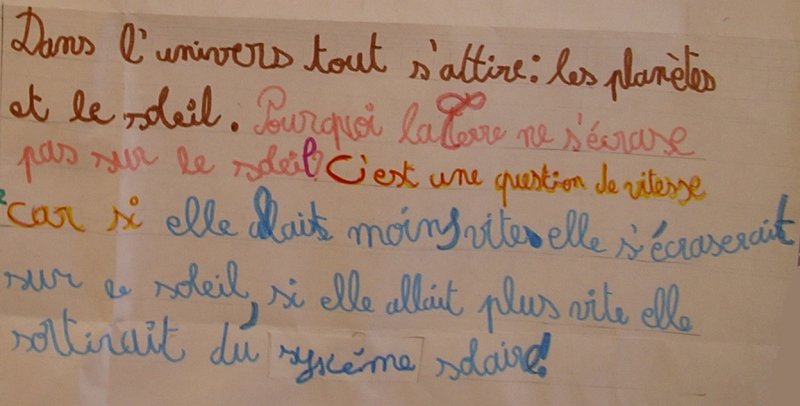 Dans l'univers tout s'attire : les planètes
et le soleil. Pourquoi la Terre ne s'écrase
pas sur le soleil? C'est une question de vitesse
car si elle allait moins vite elle s'écraserait
sur le soleil, si elle allait plus vite elle
sortirait du système solaire!